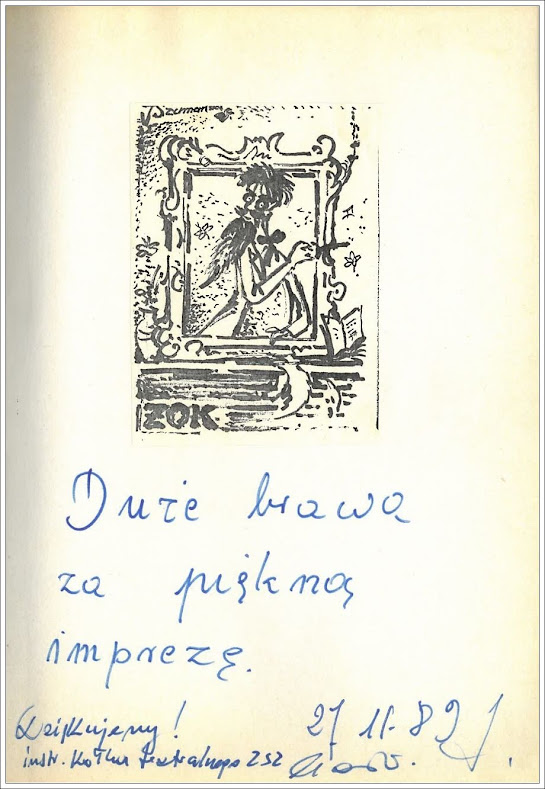 ZOK
Duże brawa
za piękną
imprezę.
Dziękujemy! 27 11. 89
instr. Kółka teatralnego ZSZ